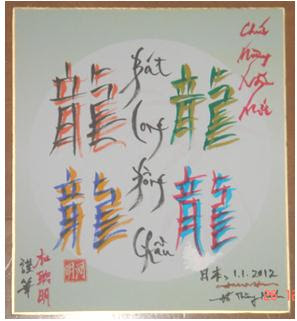 龍 龍
龍 龍
Bát
Long
Chầu
Chúc
Mừng
Năm
Mới
杜聰明
謹筆
日本, 1.1.2012